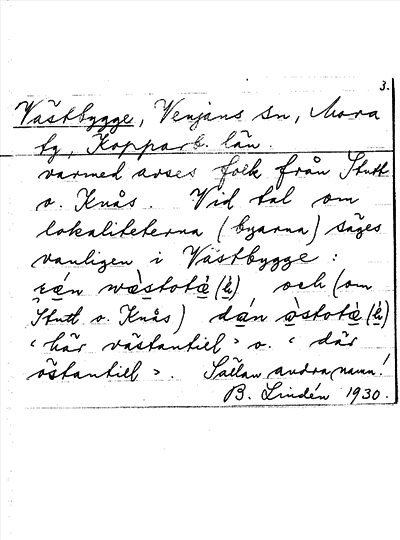 3.
Västbygge, Venjans sn, Mora
tg, Kopparb. län.
varmed avses folk från Stutt
o. Knås. Vid tal om
lokaliteterna (byarna) säges
vanligen i Västbygge:
och (om
Stutt o. Knås)
"här västantill" o. "där
östantill". Sällan andra namn!
B. Lindén 1930.